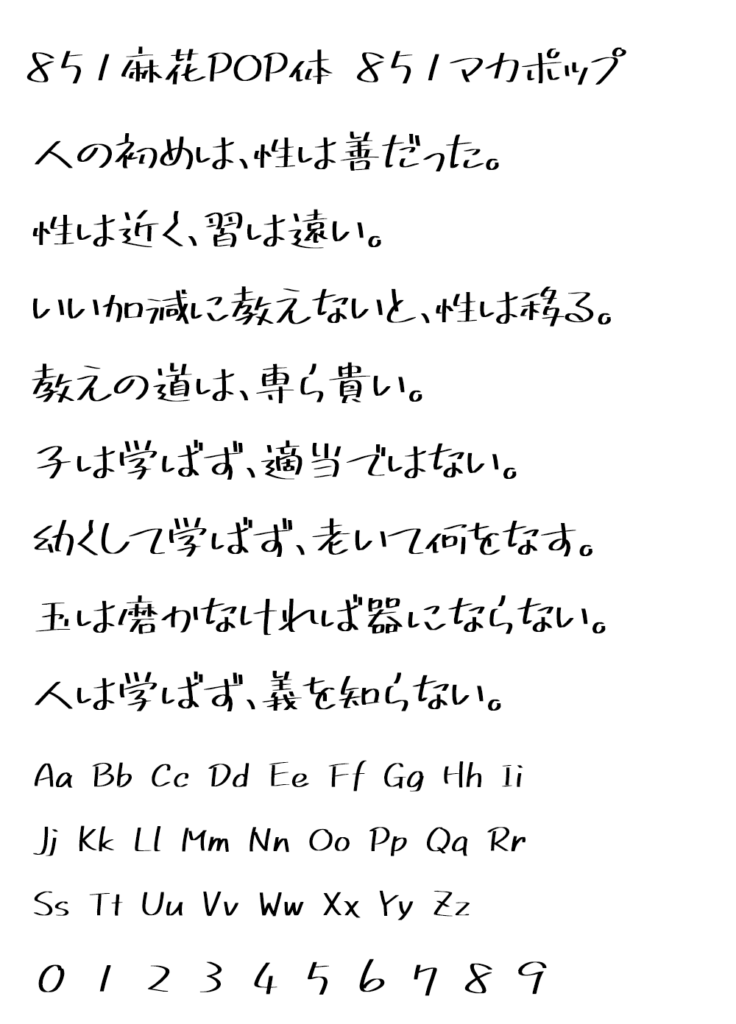 851麻花POP体 851マカポップ
人の初めは、性は善だった。
性は近く、習は遠い。
いい加減に教えないと、性は移る。
教えの道は、専ら貴い。
子は学ばず、適当ではない。
幼くして学ばず、老いて何をなす。
玉は磨かなければ器にならない。
人は学ばず、義を知らない。
Aa Bb Cc Dd Ee Ff Gg Hh Ii
Jj Kk Ll Mm Nn Oo Pp Qq Rr
Ss Tt Uu Vv Ww Xx Yy Zz
0 1 2 3 4 5 6 7 8 9